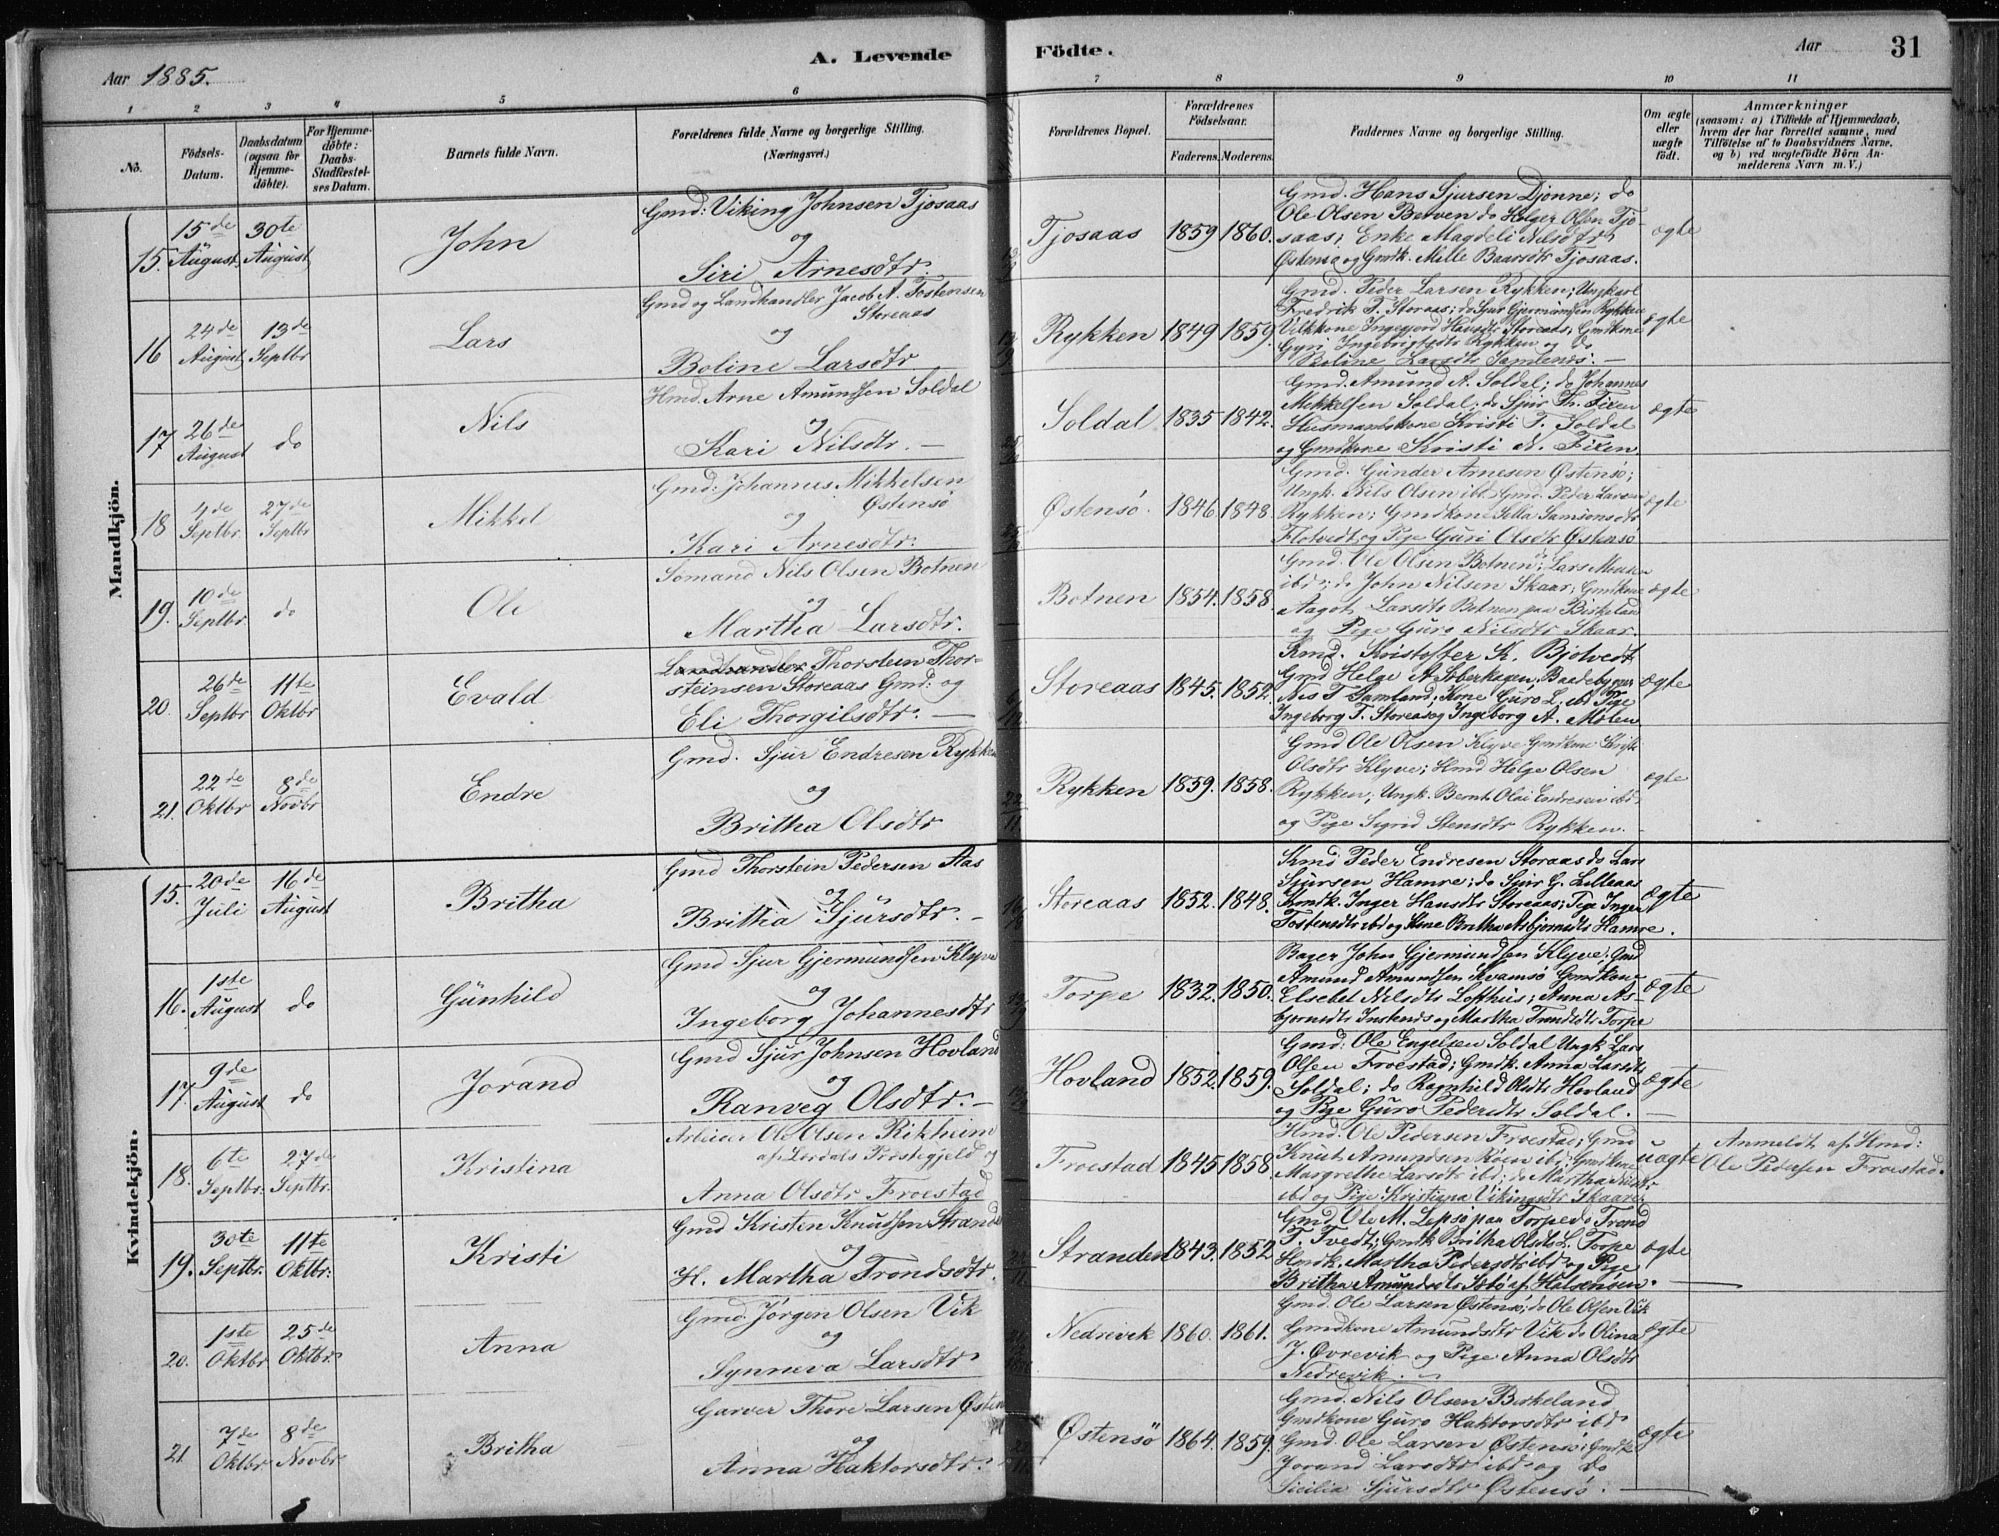 Aar 1885.
A. Levende
Födte.
Aar
31
1
2
3
4
5
6
7
8
9
10
11
No.
Födsels-
Datum.
Daabsdatum
(ogsaa for
Hjemme-
döbte).
For Hjemme-
døbte:
Daabs-
Stadfæstel-
ses Datum.
Barnets fulde Navn.
Forældrenes fulde Navne og borgerlige Stilling.
(Næringsvei.)
Forældrenes Bopæl.
Forældrenes
Födselsaar.
Faderens.
Moderens.
Faddernes Navne og borgerlige Stilling.
Om ægte
eller
uægte
födt.
Anmærkninger
(saasom: a) i Tilfælde af Hjemmedaab,
hvem der har forrettet samme, med
Tilföielse af to Daabsvidners Navne,
og b) ved uægtefödte Börn An-
melderens Navn m. V.)
Mandkjön.
15.
15de
August
30te
August
John
Gmd: Viking Johnsen Tjosaas
og
Siri Arnesdtr.
Tjosaas
1859
1860.
Gmd. Hans Sjursen Djonne; do
Ole Olsen Betven do Helger Olsen Tjo-
saas; Enke Magdeli Nilsdtr
Østensø og Gmdk. Mille Baarsdtr Tjosaas.
ægte
16
24de
August
13de
Septbr
Lars
Gmd og Landhandler Jacob A. Tostensen
Storeaas
og
Boline Larsdtr
Rykken
1849
1859.
Gmd. Peder Larsen Rykken; Ungkarl
Fredrik T. Storaas; do Sjur Gjermundsen Rykken
Ingeborg Hansdtr Storeaas; Gmdkone
Gyri Ingebrigtsdtr Rykken og do
Boline Larsdtr Samlenes. —
ægte
17
26de
August
do
Nils
Hmd. Arne Amundsen Soldal
og
Kari Nilsdtr. —
Soldal
1835
1842.
Gmd. Amund A. Soldal; do Johannes
Mikkelsen Soldal; do Sjur Th. Fixen
Husmandskone Kristi T. Soldal
og Gmdkone Kristi N. Fixen
ægte
18
4de
Septbr.
27de
Septbr
Mikkel
Gmd: Johannes Mikkelsen
Østensö
og
Kari Arnesdtr.
Østensö.
1846.
1848.
Gmd. Gunder Arnesen Østensö;
Ungk. Nils Olsen ibd. Gmd. Peder Larsen
Rykken; Gmdkone Sella Samsonsdtr
Flotvedt og Pige Guri Olsdtr Østensö
ægte
19.
10de
Septbr
do
Ole
Sömand Nils Olsen Botnen
og
Martha Larsdtr.
Botnen
1854.
1858.
Gmd. Ole Olsen Botnen; do Lars
ibd; do John Nilsen Skaar; Gmdkone
Aagot Larsdtr Botnen paa Birkeland
og Pige Guro Nilsdtr Skaar.
ægte
20.
26de
Septbr
11te
Oktbr
Evald
Landhandler Thorstein Thor-
steinsen Storeaas Gmd: og
Eli Thorgilsdtr. —
Storeaas
1845.
1852.
Kmd. Kristoffer K. Bjotvedt
Gmd Helge A. Aberhagen, Baadebygger
Nis T. Samland, Kone Guro L. ibd Pige
Ingeborg T. Storeas og Ingeborg A. Molen
ægte
21.
22de
Oktbr
8de
Novbr
Endre
Gmd. Sjur Endresen Rykken
og
Britha Olsdtr
Rykken
1859.
1858.
Gmd Ole Olsen Klyve Gmdkone
Olsdtr Klyve; Hmd Helge Olsen
Rykken, Ungk. Bernt Olai Endresen ibd
og Pige Sigrid Stensdtr Rykken.
ægte
Kvindekjön.
15.
20de
Juli
16de
August
Britha
Gmd Thorstein Pedersen Aas
og
Britha Sjursdtr. —
Storeaas
1852.
1848.
Kmd Peder Endresen Storaas do Lars
Sjursen Hamre; do Sjur G. Lilleaas
Kmdk. Inger Hansdtr Storeaas; Pige Inger
Tostensdtr ibd og Kone Britha Asbjornsdtr Hamre.
ægte
16.
1ste
August
do
Günhild
Gmd Sjur Gjermundsen Klyve
og
Ingeborg Johannesdtr
Torpe
1832.
1850.
Bager John Gjermundsen Klyve; Gmd
Amund Amundsen Kvamsö Gmdkone
Elsebet Nilsdtr Lofthus; Anna As-
bjornsdtr og Martha Torpe
ægte
17.
9de
August
do
Jorand
Gmd Sjur Johnsen Hovland
og
Ranveg Olsdtr. —
Hovland
1852.
1859.
Gmd: Ole Engelsen Soldal Ungk Lars
Olsen Froestad; Gmdk. Anna Larsdtr
Soldal; do Ragnhild Olsdtr Hovland
og Pige Guro Pedersdtr Soldal.
ægte
18.
6te
Septbr:
27de
Septbr:
Kristina
Arbeider Ole Olsen Rikheim
af Lerdals Prestegjeld og
Anna Olsdtr Froestad
Froestad
1845
1858.
Hmd. Ole Pedersen Froestad; Gmd
Knut Amundsen Röen ibd; Gmdkone
Margrethe Larsdtr ibd; do Martha
ibd og Pige Kristiana Vikingsdtr Skaare.
uægte
Anmeldt af Hmd:
Ole Pedersen Froestad.
19.
30te
Septbr.
11te
Oktbr:
Kristi
Gmd Kristen Knudsen Stranden
og
H. Martha Trondsdtr.
Stranden
1843.
1852.
Gmd Ole M. Lepsö paa Torpe do Trond
T. Tvedt; Gmdk Britha Olsdtr L. Torpe
Hmdk. Martha Pedersdtr ibd og Pige
Britha Amundsdtr af Halsensen. —
ægte
20.
1ste
Oktbr
25de
Oktbr:
Anna
Gmd. Jörgen Olsen Vik
og
Synneva Larsdtr
Nedrevik
1860.
1861.
Gmd. Ole Larsen Østensö; do Ole Olsen Vik
Gmdkone Amundsdtr Vik do Olina
J. Övrevik og Pige Anna Olsdtr
Nedrevik.
ægte
21
7de
Oktbr
8de
Novbr
Britha
Garver Thore Larsen Østensö
og
Anna Haktorsdtr.
Østensö
1864.
1859.
Gmd. Nils Olsen Birkeland
Gmdkone Guro Haktorsdtr ibd
Gmd. Ole Larsen Østensö; Gmdk
Jorand Larsdtr ibd og do
Sicilia Sjursdtr Østensö.
ægte